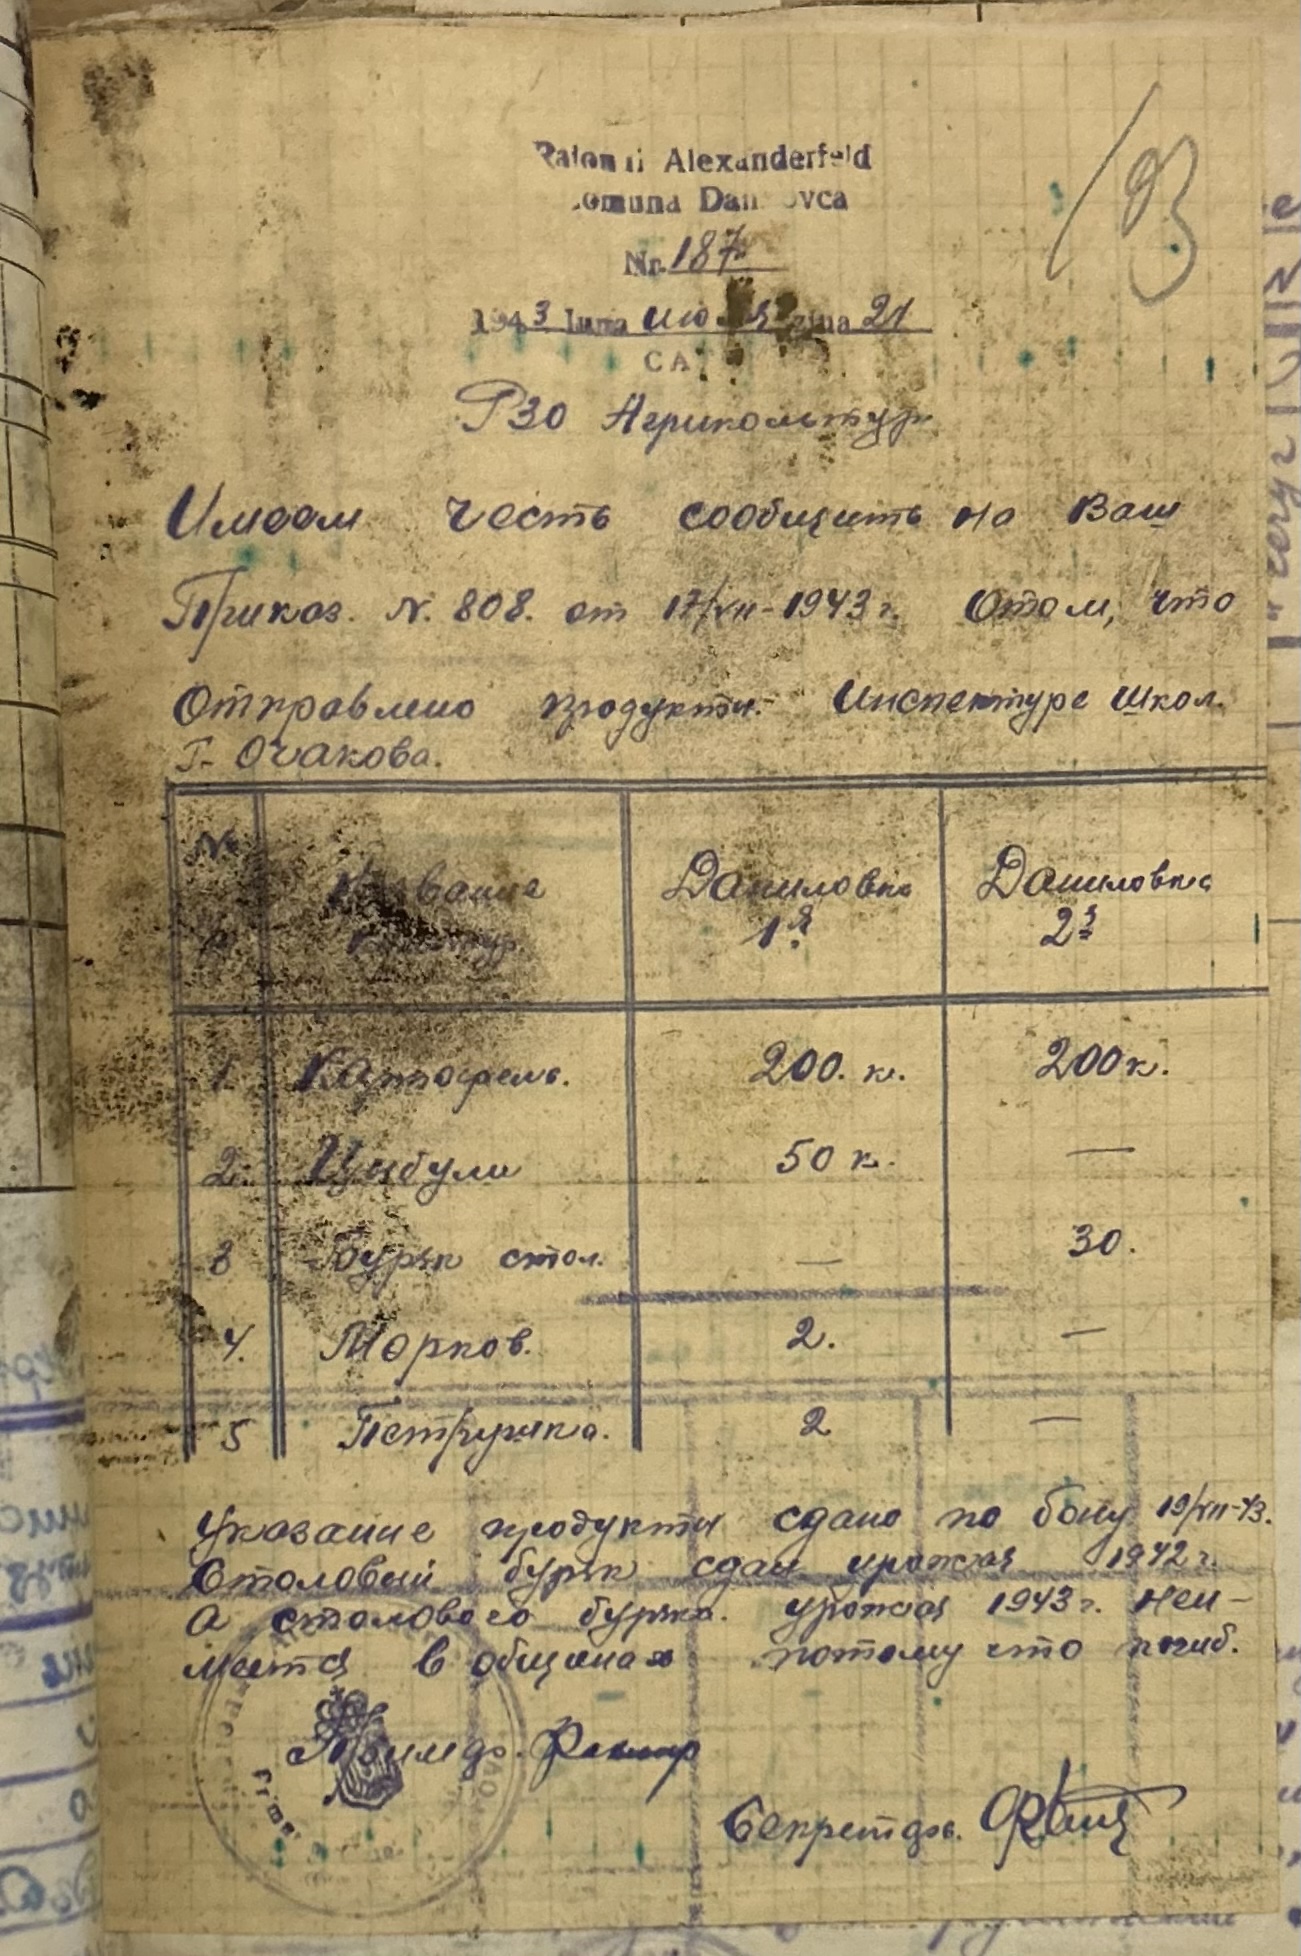 Raionul Alexanderfeld
Comuna Danilovca
Nr. 187
1943 luna июля ziua 21
CA
РЗО Агрикольтур
Имеем честь сообщить на Ваш
Приказ. N. 808. от 17/VII-1943 г. Отом, что
Отправлено продукти. Инспектуре школ.
г. Очакова.
№ Название Даниловка 1я Даниловка 2я
культур
1 Картофель. 200. к. 200 к.
2. Цибули 50 к. —
3 Буряк стол. — 30.
4. Морков. 2. —
5 Петрушка. 2 —
Указание продукти сдано по бону 19/VII-43.
Столовый буряк сдан урожая 1942 г.
А столового буряка. урожая 1943 г. Неи-
меится в общинах потому что погиб.
Примар.
Секретарь.